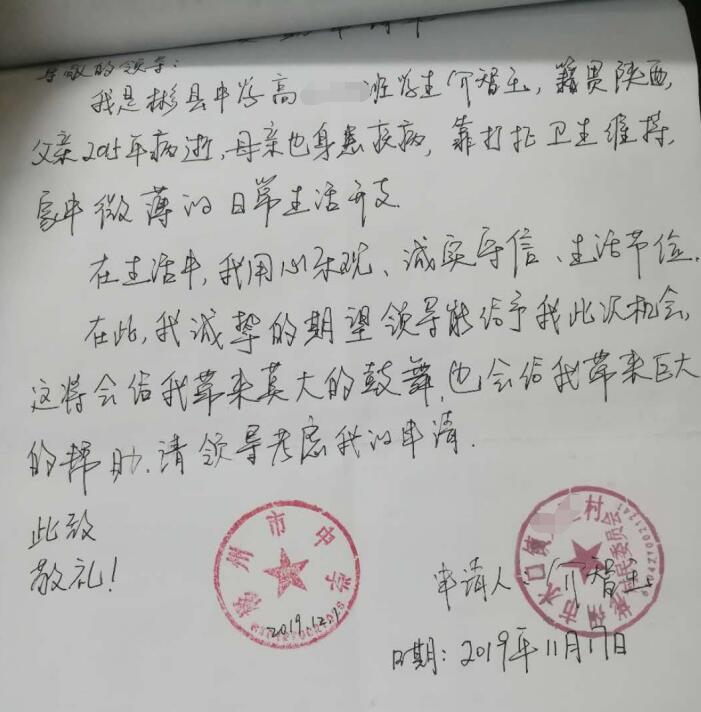 尊敬的领导：
我是彬县中学高 班学生 智 ，籍贯陕西，
父亲2015年病逝，母亲也身患疾病，靠打扫卫生维持
家中微薄的日常生活开支
在生活中，我用心乐观、诚实守信、生活节俭．
在此，我诚挚的期望领导能给予我此次机会，
这将会给我带来莫大的鼓舞，也会给我带来巨大
的帮助．请领导考虑我的申请．
此致
敬礼！
市中学
2019.12.
水口镇 村
村民委员会
申请人： 智
日期：2019年11月17日